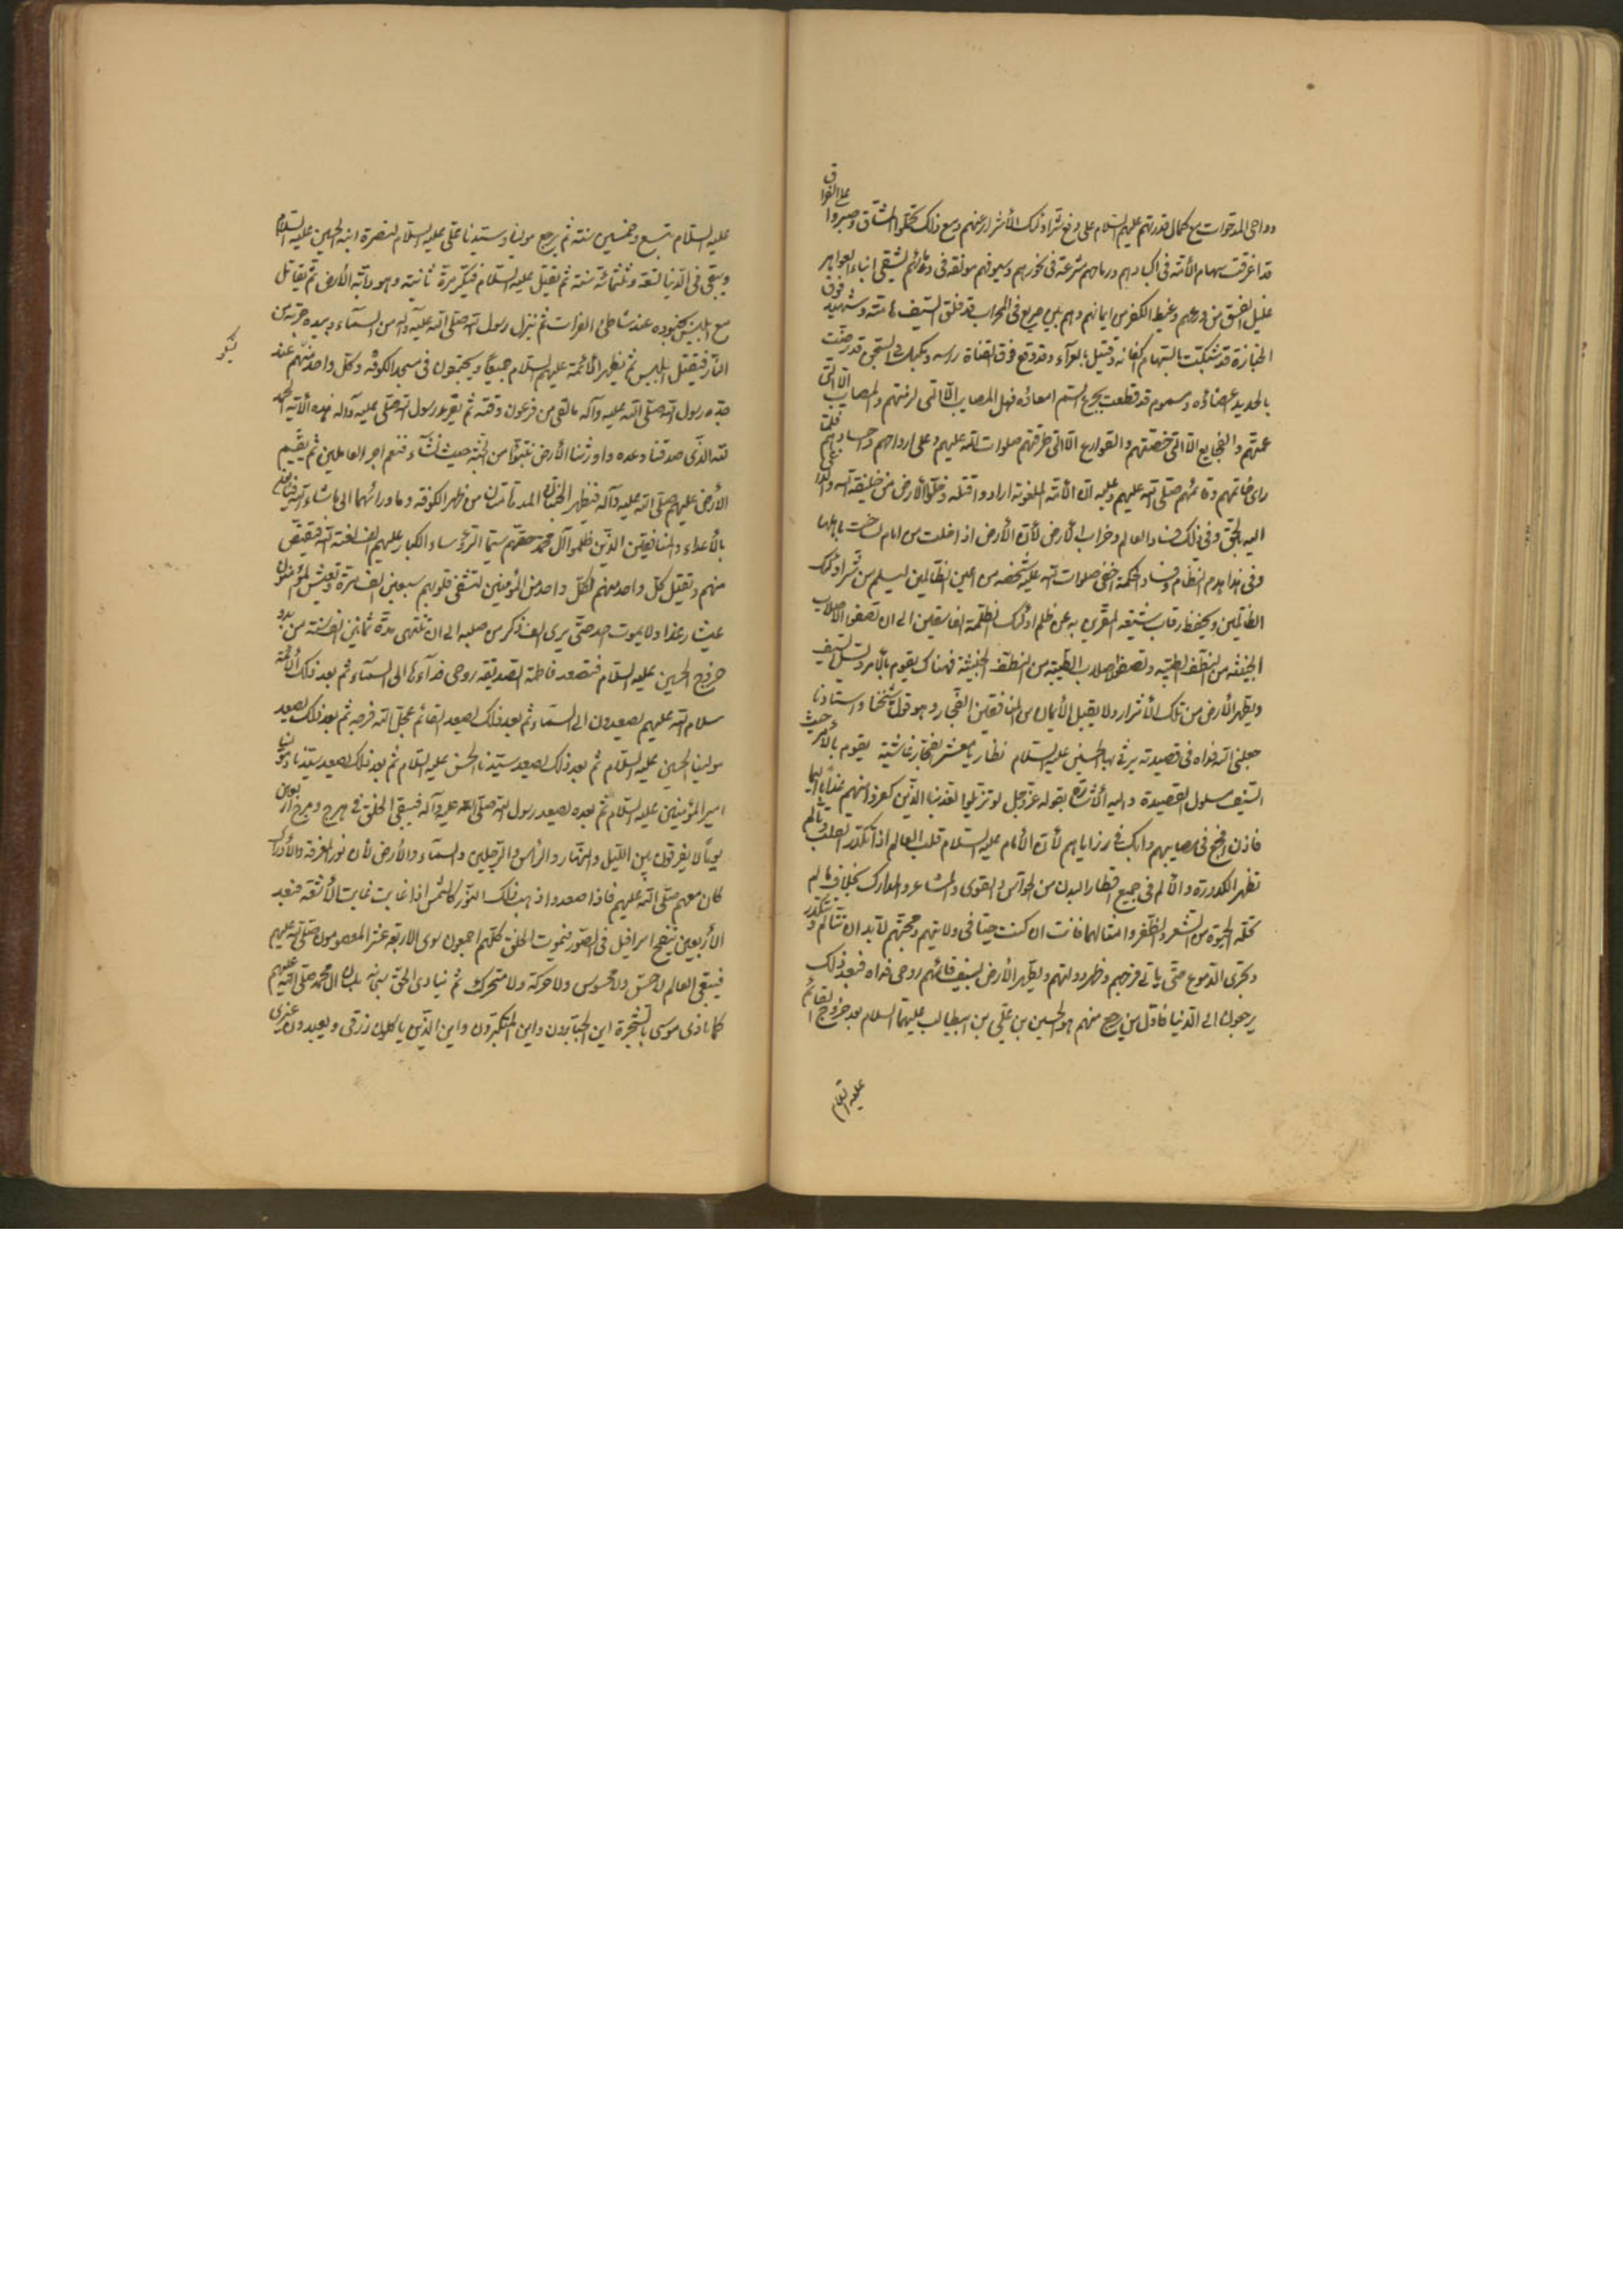 وداحی المدحوات مع کمال قدرتهم علیهم السلام علی دفع شر اولئک الأشرار عنهم ومع ذلک تحملوا المشاق وصبروا
علی الفراق
قد اغرقت سهام الأمة فی اکبادهم ورماحهم شرعة فی نحورهم وسیوفهم مولغة فی دمائهم یشفی ابناء العواهر
غلیل الفسق من ورعهم وغیظ الکفر من ایمانهم وهم بین صریع فی المحراب قد فلق السیف هامته وشهید
فوق
الجنازة قد شبکت بالسهام اکفانه وقتیل بالعراء قد رفع فوق القناة راسه ومکبل فی السجن قد رضت
بالحدید اعضاؤه ومسموم قد قطعت بجرع السم امعاؤه فهل المصایب الا التی لزمتهم والمصایب الا التی
عمتهم والفجایع الا التی خصتهم والقوارع الا التی طرقتهم صلوات الله علیهم وعلی ارواحهم واجسادهم
فلما
رای خاتمهم وقائمهم صلی الله علیهم وعلیه ان الأمة الملعونة ارادوا قتله وخلو الأرض من خلیفة الله والداعی
الیه بالحق وفی ذلک فساد العالم وخراب الأرض لأن الأرض اذا خلت من امام لساخت باهلها
وفی هذا هدم النظام وفساد الحکمة اخفی صلوات الله علیه شخصه من اعین الظالمین لیسلم من شر اولئک
الظالمین ویحفظ رقاب شیعته المقرین به عن ظلم اولئک الظلمة الفاسقین الی ان تصفی الأصلاب
الخبیثة من النطف الطیبة وتصفو الاصلاب الطیبة من النطف الخبیثة فهناک یقوم بالأمر ویسل السیف
ویطهر الأرض من تلک الأشرار ولا یقبل الأیمان من المنافقین الفجار وهو قول شیخنا واستادنا
جعلنی الله فداه فی قصیدته یرثی بها الحسین علیه السلام نظار یا معشر الفجار غاشیة یقوم بالأمر حیث
السیف مسلول القصیدة والیه الأشارة بقوله عز وجل لو تزیلوا لعذبنا الذین کفروا منهم عذابا الیما
فاذن افجع فی مصایبهم وابک فی رزایاهم لأن الأمام علیه السلام قلب العالم اذا تکدر القلب وتألم
تظهر الکدورة والألم فی جمیع اقطار البدن من الحواس والقوی والمشاعر والمدارک بخلاف ما لم
تحله الحیوة من الشعر والظفر وامثالهما فانت ان کنت حیا فی ولایتهم ومحبتهم لابد ان تتألم وتتکدر
وتجری الدموع حتی یاتی فرجهم وظهر دولتهم ویطهر الأرض بسیف قائمهم روحی فداه فبعد ذلک
یرجعون الی الدنیا فاول من یرجع منهم هو الحسین بن علی بن ابیطالب علیهما السلام بعد خروج القائم
علیه السلام
علیه السلام بتسع وخمسین سنة ثم یرجع مولینا وسیدنا علی علیه السلام لنصرة ابنه الحسین علیه السلام
ویبقی فی الدنیا تسعة وثلثمائة سنة ثم یقتل علیه السلام فیکر مرة ثانیة وهو دابة الأرض ثم یقاتل
مع ابلیس بجنوده عند شاطئ الفرات ثم ینزل رسول الله صلی الله علیه وآله من السماء وبیده حربة من
النار فیقتل ابلیس ثم یظهر الأئمة علیهم السلام جمیعا ویجتمعون فی مسجد الکوفة وکل واحد منهم عند
جده رسول الله صلی الله علیه وآله ما لقی من فرعون وقته ثم یقرء رسول الله صلی علیه وآله هذه الآیة الحمد
لله الذی صدقنا وعده واورثنا الأرض نتبوأ من الجنة حیث نشآء فنعم اجر العاملین ثم یقیم
الأرض علیهم صلی الله علیه وآله فتظهر الجنتان المدهامتان من ظهر الکوفة وما ورائهما الی ماشاء الله
بالأعداء والمنافقین الذین ظلموا آل محمد حقهم سیما الرؤساء الکبار علیهم الف لعنة الله فیقتص
منهم ویقتل کل واحد منهم لکل واحد من المؤمنین لتشفی قلوبهم سبعین الف مرة وتعیش المؤمنون
عیشا رغدا ولا یموت احد حتی یری الف ذکر من صلبه الی ان تنتهی مدة ثمانین الف سنة من بدو
خروج الحسین علیه السلام فتصعد فاطمة الصدیقة روحی فدآءها الی السمآء ثم بعد ذلک الأئمة
سلام الله علیهم یصعدون الی السمآء ثم بعد ذلک یصعد القائم عجل الله فرجه ثم بعد ذلک یصعد
مولینا الحسین علیه السلام ثم بعد ذلک یصعد سیدنا الحسن علیه السلام ثم بعد ذلک یصعد سیدنا ومولینا
امیر المؤمنین علیه السلام ثم بعده یصعد رسول الله صلی الله علیه وآله فیبقی الخلق فی هرج ومرج اربعین
یوما لا یفرقون بین اللیل والنهار والرأس والرجلین والسمآء والأرض لأن نور المعرفة والأدراک
کان معهم صلی الله علیهم فاذا صعدوا ذهب ذلک النور کالشمس اذا غابت غابت الأشعة فبعد
الأربعین ینفخ اسرافیل فی الصور فیموت الخلق کلهم اجمعون سوی الاربعة عشر المعصومون صلی الله علیهم
فیبقی العالم لا حس ولا محسوس ولا حرکة ولا متحرک ثم ینادی الحق سبحانه بلسان آل محمد صلی الله علیهم
کما نادی موسی بالشجرة این الجبارون واین المتکبرون واین الذین یاکلون رزقی ویعبدون غیری